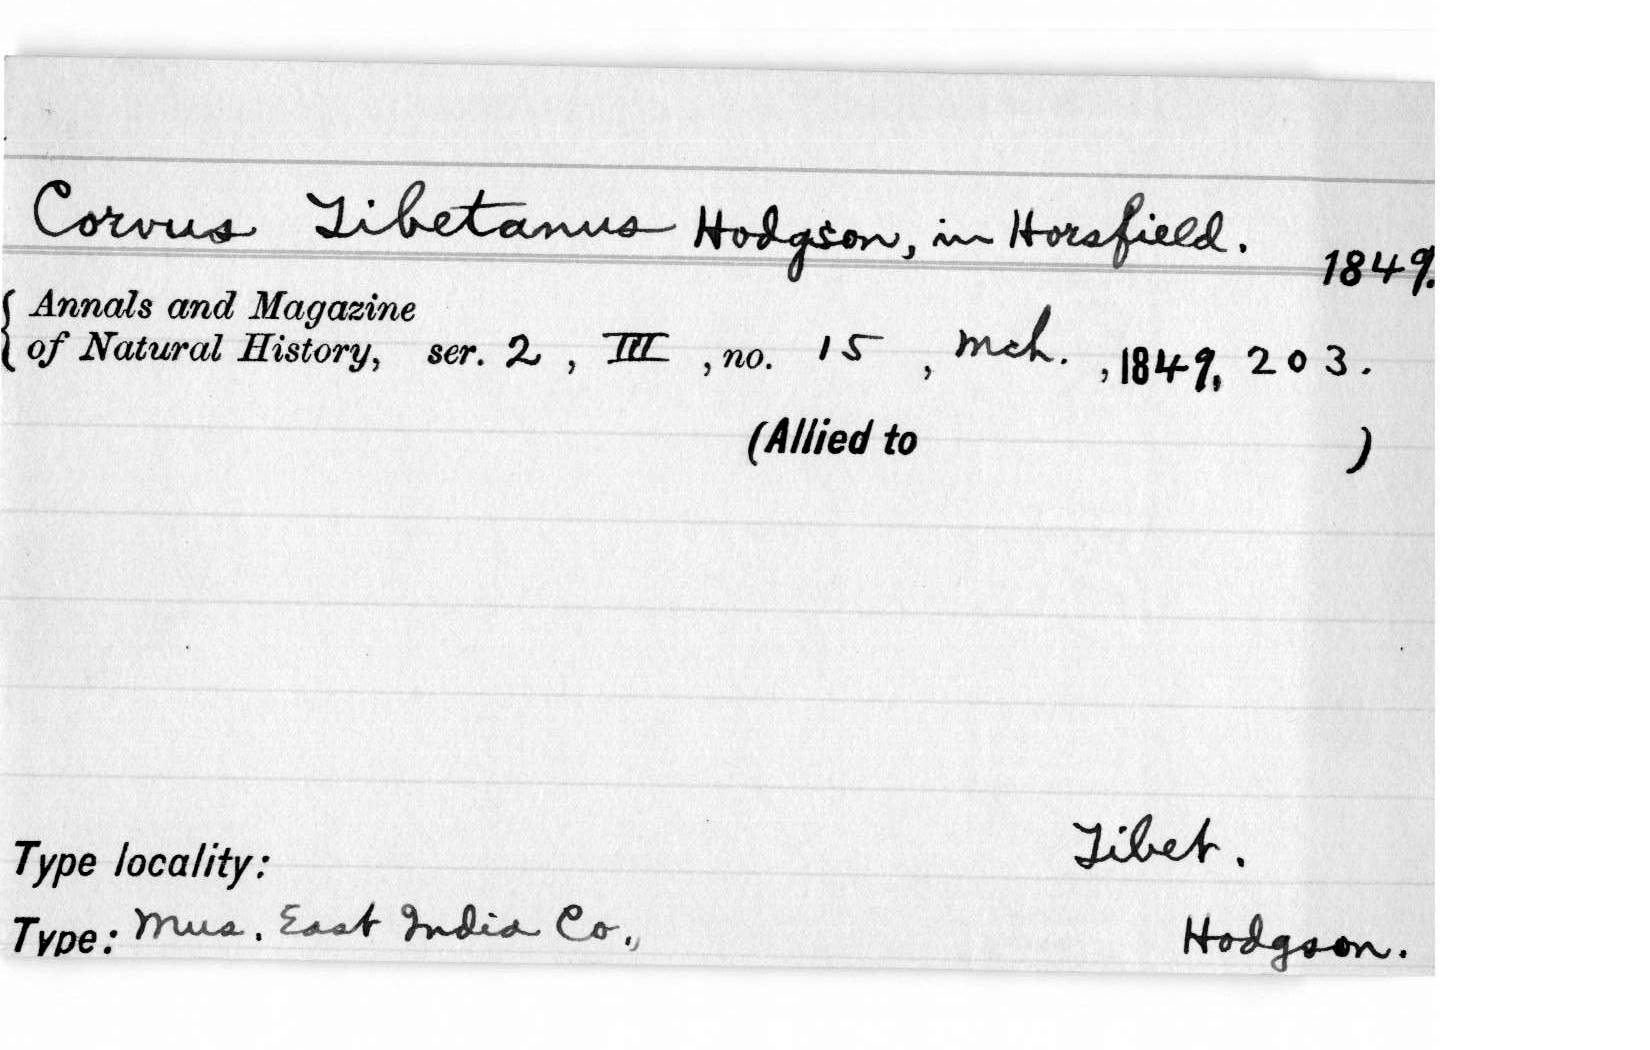 Corvus Tibetanus Hodgson, in Horsfield. 1849.
Annals and Magazine
of Natural History, ser. 2, III, no. 15, Mch., 1849, 203.
(Allied to )
Type locality: Tibet.
Type: Mus. East India Co., Hodgson.